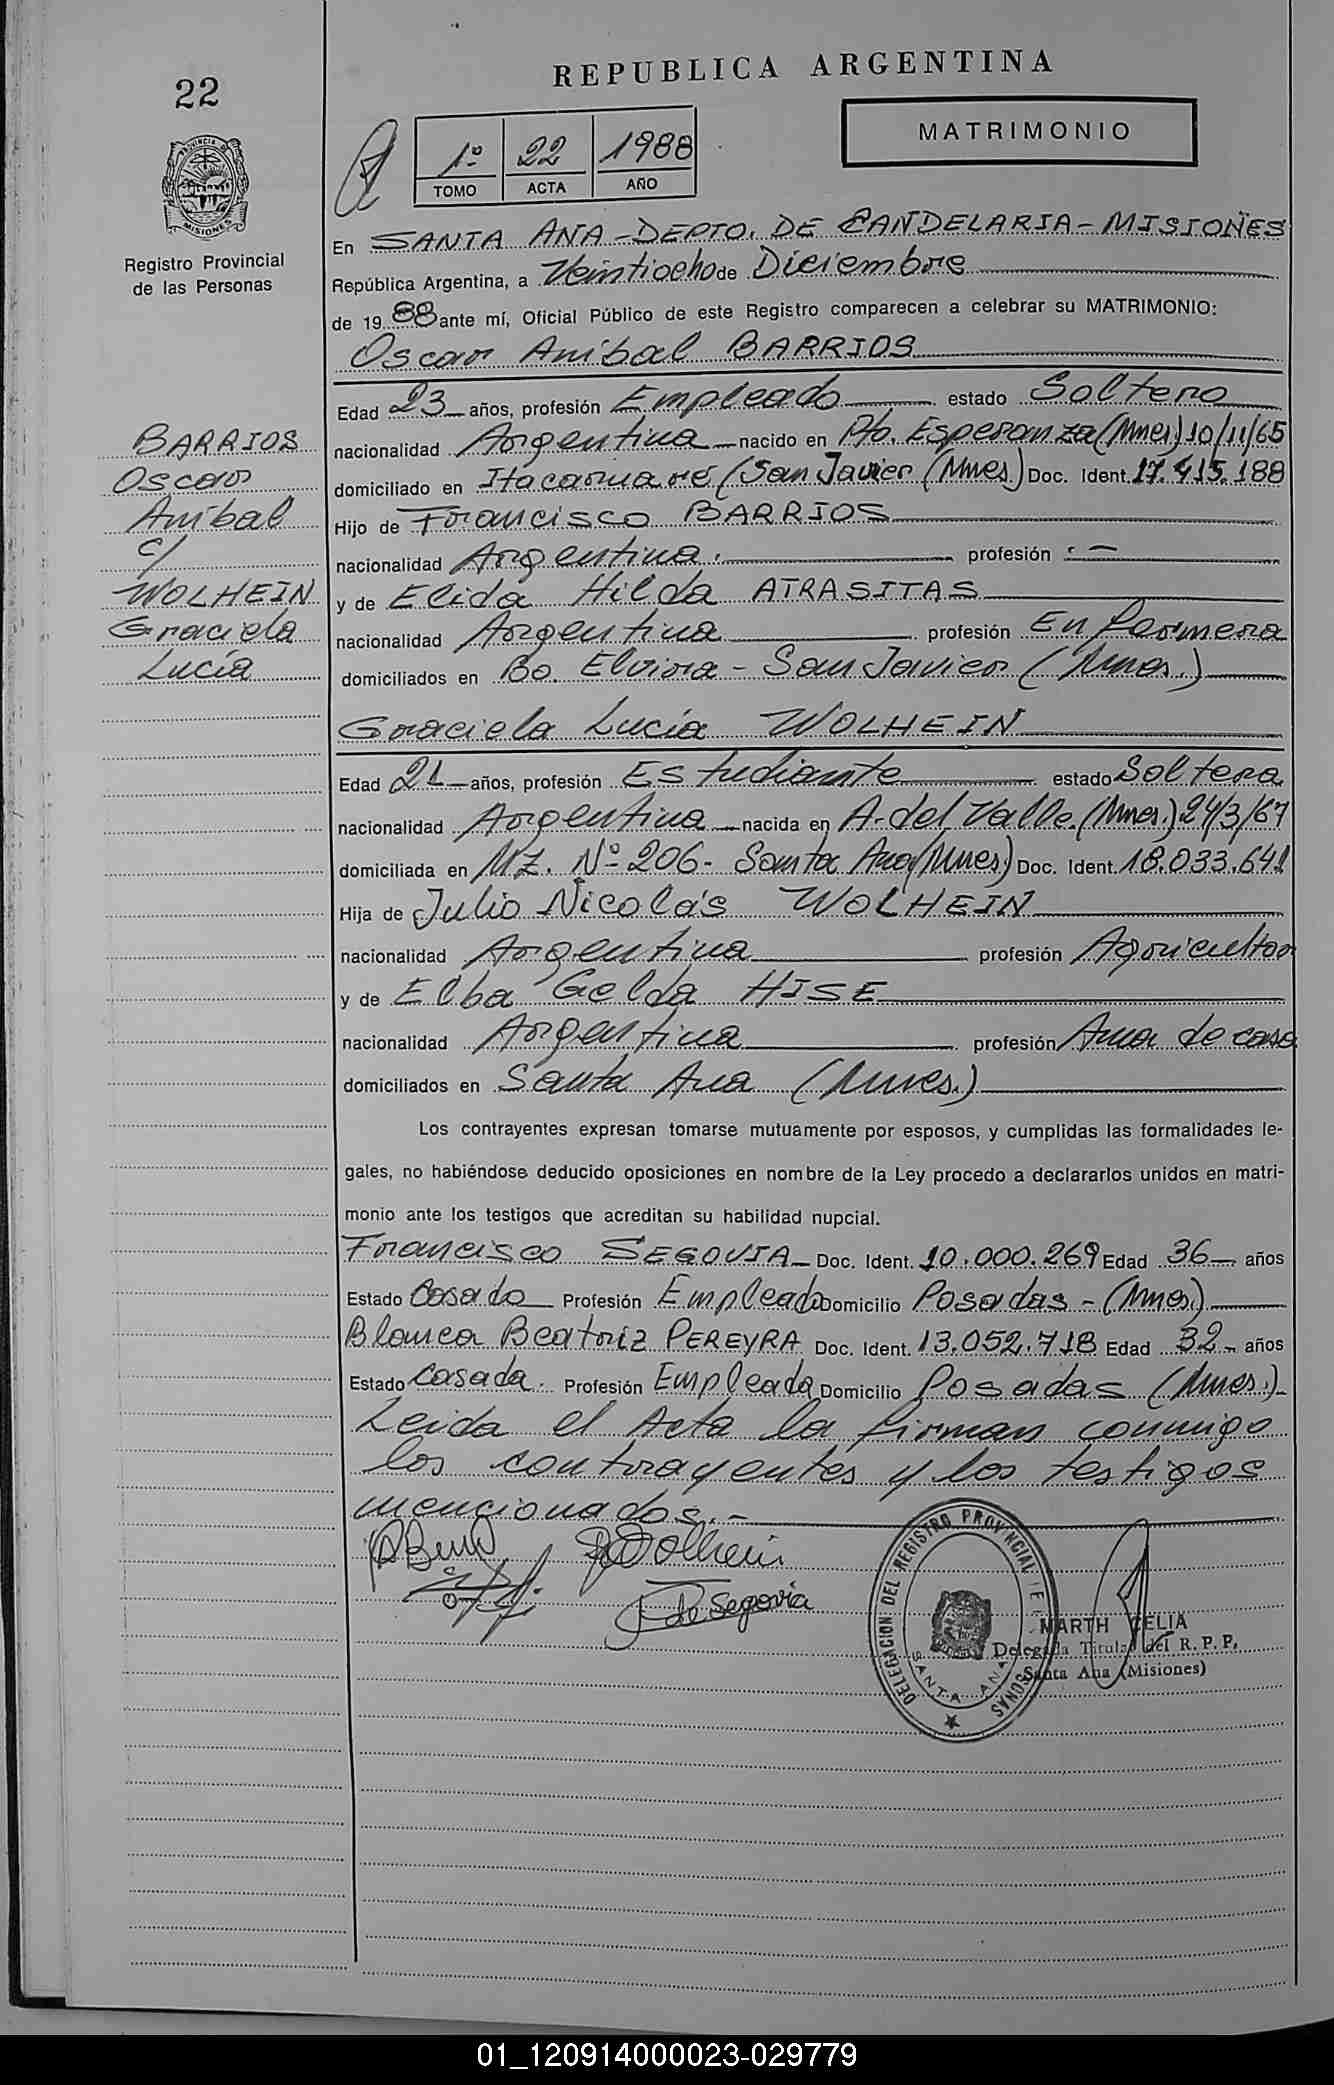 22
REPUBLICA ARGENTINA
MATRIMONIO
1º 22 1988
TOMO ACTA AÑO
PROVINCIA DE
MISIONES
Registro Provincial
de las Personas
En SANTA ANA - DEPTO. DE CANDELARIA - MISIONES
República Argentina, a Veintiocho de Diciembre
de 19 88 ante mí, Oficial Público de este Registro comparecen a celebrar su MATRIMONIO:
Oscar Anibal BARRIOS
Edad 23 años, profesión Empleado estado Soltero
nacionalidad Argentina nacido en Pto. Esperanza (Mnes) 10/11/65
domiciliado en Itacaruaré (San Javier (Mnes) Doc. Ident. 17.415.188
Hijo de Francisco BARRIOS
nacionalidad Argentina. profesión . —
y de Elida Hilda ATRASITAS
nacionalidad Argentina profesión Enfermera
domiciliados en Bo. Elvira - San Javier (Mnes.)
Graciela Lucía WOLHEIN
BARRIOS
Oscar
Anibal
c/
WOLHEIN
Graciela
Lucía
Edad 21 años, profesión Estudiante estado Soltera
nacionalidad Argentina nacida en A. del Valle. (Mnes.) 24/3/67
domiciliada en MZ. Nº 206 - Santa Ana (Mnes.) Doc. Ident. 18.033.641
Hija de Julio Nicolás WOLHEIN
nacionalidad Argentina profesión Agricultor
y de Elba Gelda HISE
nacionalidad Argentina profesión Ama de casa
domiciliados en Santa Ana (Mnes.)
Los contrayentes expresan tomarse mutuamente por esposos, y cumplidas las formalidades le-
gales, no habiéndose deducido oposiciones en nombre de la Ley procedo a declararlos unidos en matri-
monio ante los testigos que acreditan su habilidad nupcial.
Francisco SEGOVIA Doc. Ident. 10.000.269 Edad 36 años
Estado Casado Profesión Empleado Domicilio Posadas - (Mnes.)
Blanca Beatriz PEREYRA Doc. Ident. 13.052.718 Edad 32 años
Estado Casada. Profesión Empleada Domicilio Posadas (Mnes.)
Leida el Acta la firman conmigo
los contrayentes y los testigos
mencionados. -
Wolhein
de Segovia
DELEGACION DEL REGISTRO PROVINCIAL DE
SANTA ANA
MARTH CELIA
Delegada Titular del R. P. P.
Santa Ana (Misiones)
01_120914000023-029779